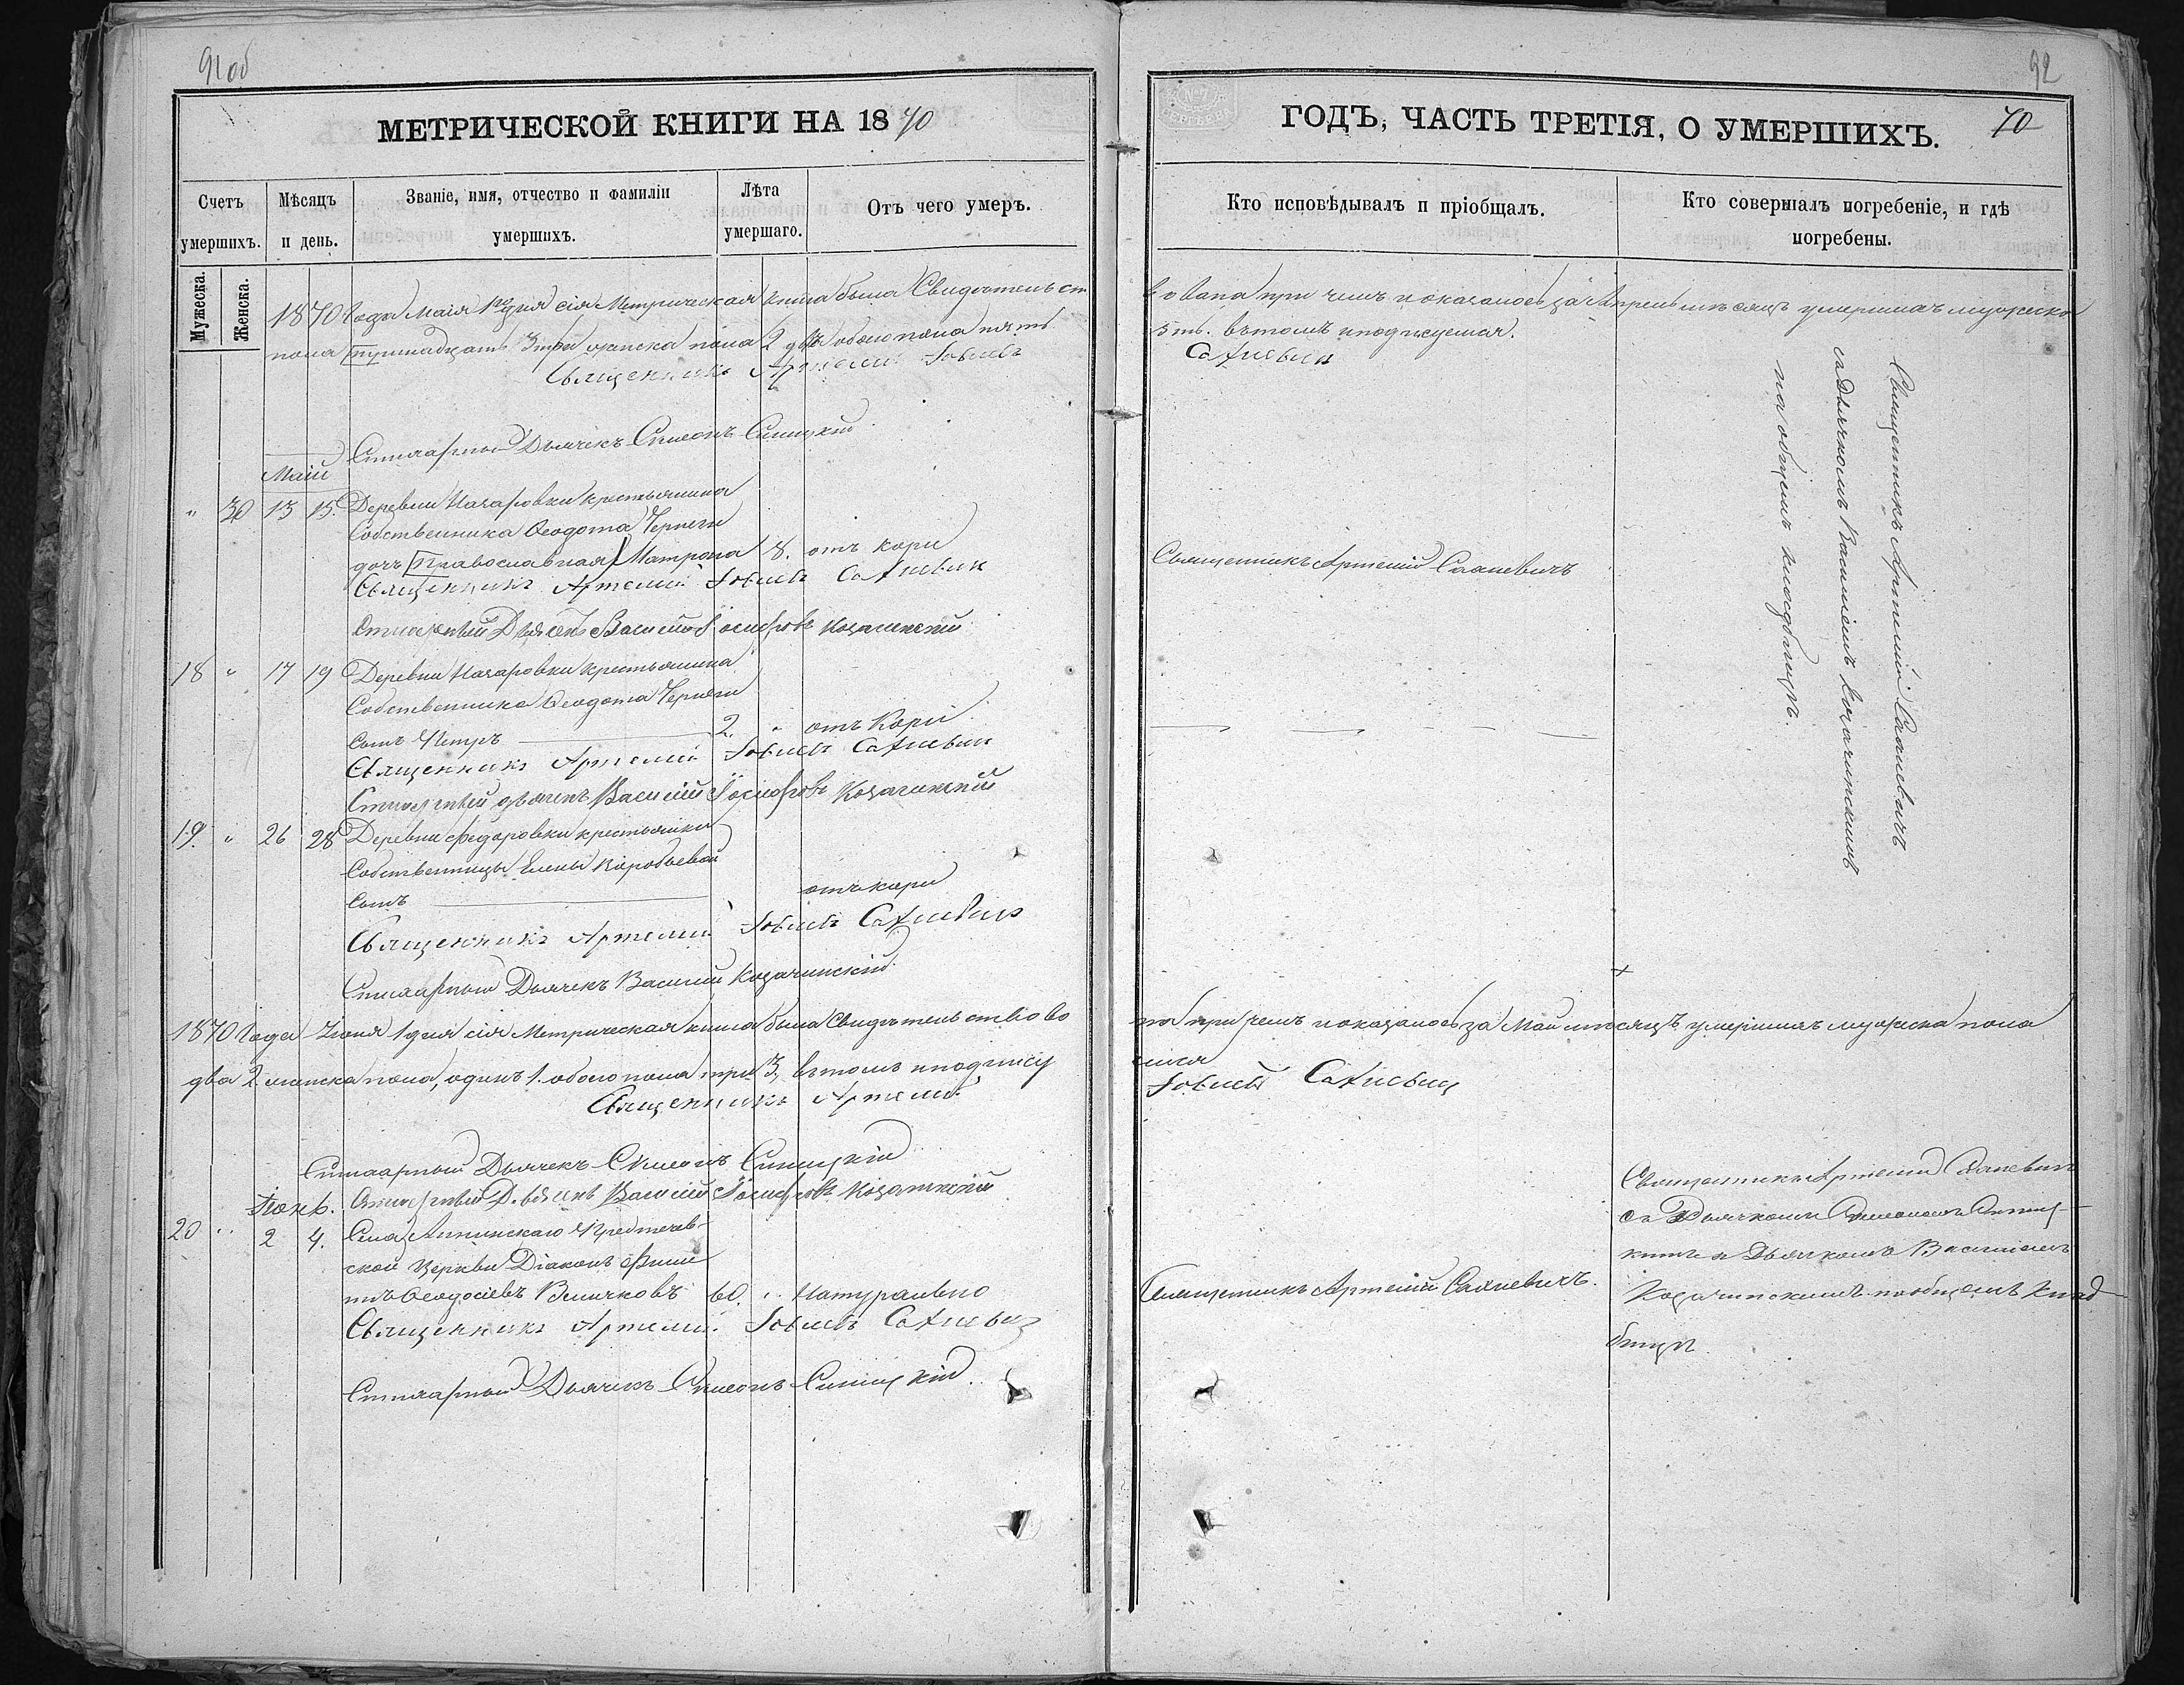 91 об
92
МЕТРИЧЕСКОЙ КНИГИ НА 1870
ГОДЪ, ЧАСТЬ ТРЕТІЯ, О УМЕРШИХЪ.
70
Счетъ умершихъ.
Мужеска.
Женска.
Мѣсяцъ и день.
Званіе, имя, отчество и фамиліи умершихъ.
Лѣта умершаго.
Отъ чего умеръ.
Кто исповѣдывалъ и пріобщалъ.
Кто совершалъ погребеніе, и гдѣ погребены.
1870 Года Маія 1го дня сія Метрическая книга была Свидѣтельст
вована при чемъ показалось за Апрель мѣсяцъ умершихъ мужеска
пола 3 три женска пола 2 два обоего пола пять
5ть. въ томъ и подписуемся.
Священникъ Артемій Іовлевъ
Сахневич
Стихарный Дьячекъ Симеонъ Синицкій
Маій
" 30 13 15. Деревни Назаровки крестьянина
Собственника Ѳеодота Чернеги
дочь Православная Матрона 8. отъ кори
Священникъ Артемій Сахневичъ
Священникъ Артемій Іовлевъ Сахневич
Стихарный Дьячекъ Василій Іосифовъ Козачинскій
18 " 17 19 Деревни Назаровки крестьянина
Собственника Ѳеодота Чернеги
Сынъ Петръ 2. " отъ Кори
Священникъ Артемій Іовлевъ Сахневич
Стихарный дьячекъ Василій Іосифовъ Козачинскій
19. " 26 28 Деревни Федоровки крестьянки
Собственницы Елены Коробьевой
Сынъ отъ кори
Священникъ Артемій Іовлевъ Сахневич
Стихарный Дьячекъ Василій Козачинскій
Священникъ Артемій Сахневичъ
съ Дьячкомъ Василіемъ Козачинскимъ
на общемъ кладбищѣ.
1870 Года Іюня 1 дня сія Метрическая книга была Свидѣтельствово
на при чемъ показалось за Май мѣсяцъ умершихъ мужеска пола
два 2 женска пола, одинъ 1. обоего пола три 3, въ томъ и подпису
емся
Священникъ Артемій
Іовлевъ Сахневич
Стихарный Дьячекъ Симеонъ Синицкій
Стихарный Дьячекъ Василій Іосифовъ Козачинскій
Іюнь.
20 " 2 4. Села Предтечев-
ской Церкви Діаконъ Фили
пъ Ѳеодосіевъ Величковъ 60. " Натурально
Священникъ Артемій Сахневичъ.
Священникъ Артемій Сахневич
съ Дьячкомъ Симеономъ Синиц-
кимъ и Дьячкомъ Василіемъ
Козачинскимъ на общемъ клад-
бищѣ.
Священникъ Артемій Іовлевъ Сахневич
Стихарный Дьячекъ Симеонъ Синицкій.